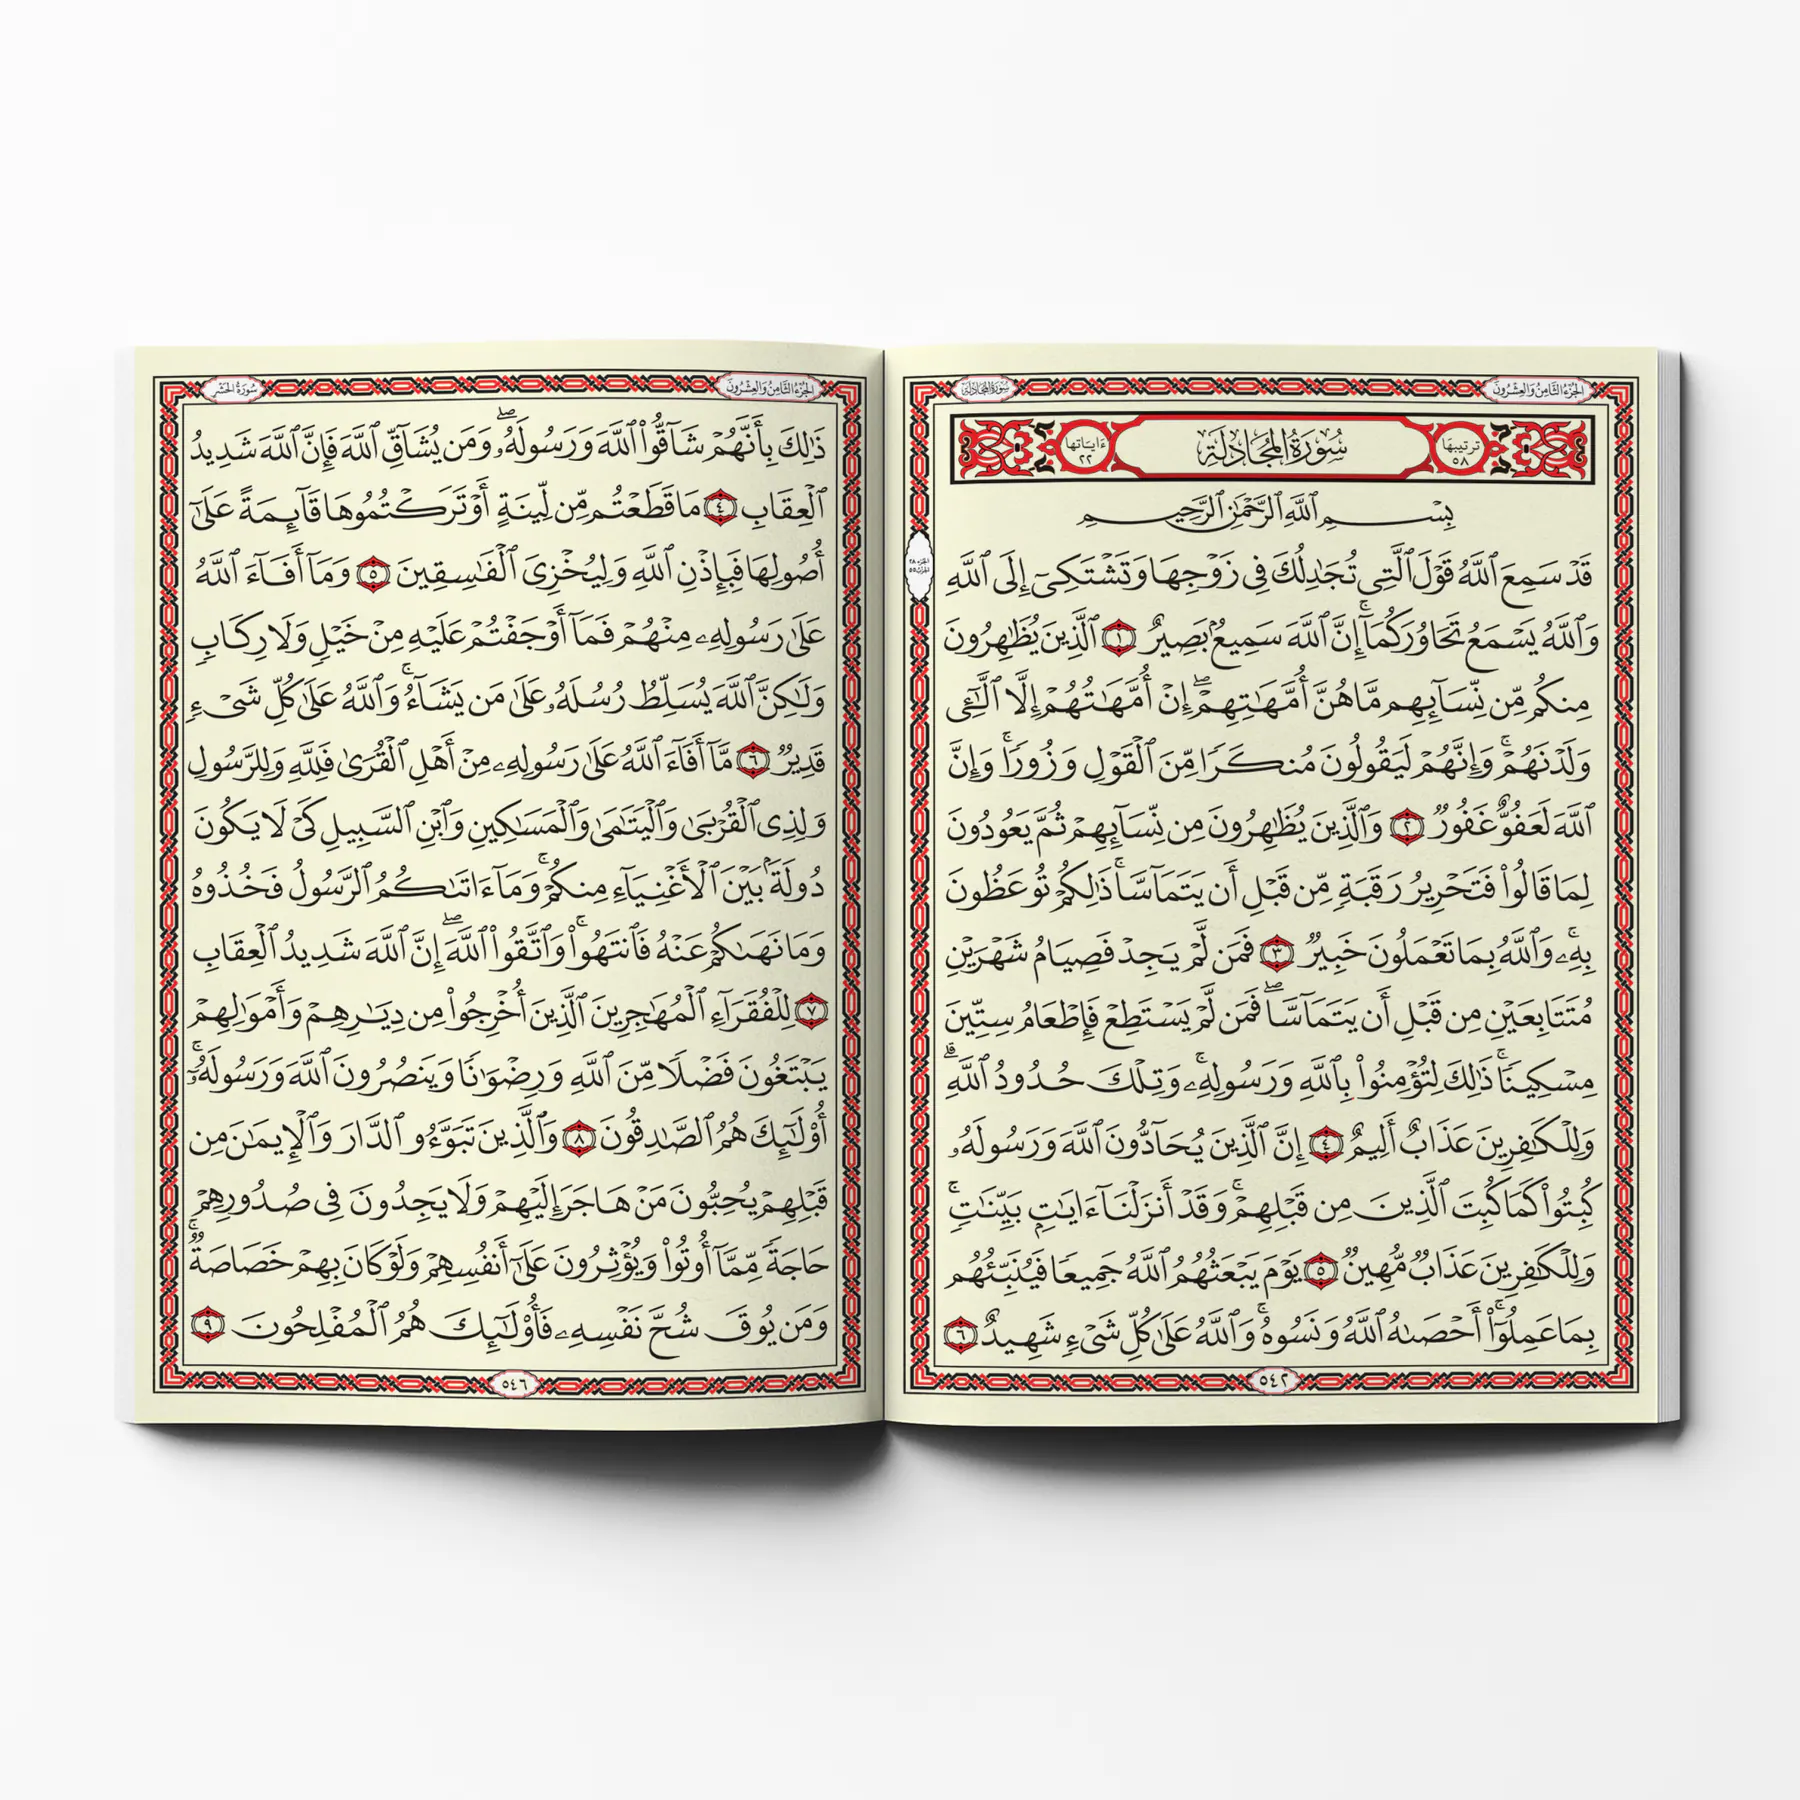 الجزء الثامن والعشرون
سورة المجادلة
ترتيبها ٥٨
سُورَةُ المُجَادلَةِ
ءَاياتها ٢٢
بِسۡمِ ٱللَّهِ ٱلرَّحۡمَٰنِ ٱلرَّحِيمِ
قَدۡ سَمِعَ ٱللَّهُ قَوۡلَ ٱلَّتِي تُجَٰدِلُكَ فِي زَوۡجِهَا وَتَشۡتَكِيٓ إِلَى ٱللَّهِ
وَٱللَّهُ يَسۡمَعُ تَحَاوُرَكُمَآۚ إِنَّ ٱللَّهَ سَمِيعُۢ بَصِيرٌ ١ ٱلَّذِينَ يُظَٰهِرُونَ
مِنكُم مِّن نِّسَآئِهِم مَّا هُنَّ أُمَّهَٰتِهِمۡۖ إِنۡ أُمَّهَٰتُهُمۡ إِلَّا ٱلَّٰٓـِٔي
وَلَدۡنَهُمۡۚ وَإِنَّهُمۡ لَيَقُولُونَ مُنكَرٗا مِّنَ ٱلۡقَوۡلِ وَزُورٗاۚ وَإِنَّ
ٱللَّهَ لَعَفُوٌّ غَفُورٞ ٢ وَٱلَّذِينَ يُظَٰهِرُونَ مِن نِّسَآئِهِمۡ ثُمَّ يَعُودُونَ
لِمَا قَالُواْ فَتَحۡرِيرُ رَقَبَةٖ مِّن قَبۡلِ أَن يَتَمَآسَّاۚ ذَٰلِكُمۡ تُوعَظُونَ
بِهِۦۚ وَٱللَّهُ بِمَا تَعۡمَلُونَ خَبِيرٞ ٣ فَمَن لَّمۡ يَجِدۡ فَصِيَامُ شَهۡرَيۡنِ
مُتَتَابِعَيۡنِ مِن قَبۡلِ أَن يَتَمَآسَّاۖ فَمَن لَّمۡ يَسۡتَطِعۡ فَإِطۡعَامُ سِتِّينَ
مِسۡكِينٗاۚ ذَٰلِكَ لِتُؤۡمِنُواْ بِٱللَّهِ وَرَسُولِهِۦۚ وَتِلۡكَ حُدُودُ ٱللَّهِۗ
وَلِلۡكَٰفِرِينَ عَذَابٌ أَلِيمٌ ٤ إِنَّ ٱلَّذِينَ يُحَآدُّونَ ٱللَّهَ وَرَسُولَهُۥ
كُبِتُواْ كَمَا كُبِتَ ٱلَّذِينَ مِن قَبۡلِهِمۡۚ وَقَدۡ أَنزَلۡنَآ ءَايَٰتِۭ بَيِّنَٰتٖۚ
وَلِلۡكَٰفِرِينَ عَذَابٞ مُّهِينٞ ٥ يَوۡمَ يَبۡعَثُهُمُ ٱللَّهُ جَمِيعٗا فَيُنَبِّئُهُم
بِمَا عَمِلُوٓاْۚ أَحۡصَىٰهُ ٱللَّهُ وَنَسُوهُۚ وَٱللَّهُ عَلَىٰ كُلِّ شَيۡءٖ شَهِيدٌ ٦
٥٤٢
الجزء الثامن والعشرون
سورة الحشر
ذَٰلِكَ بِأَنَّهُمۡ شَآقُّواْ ٱللَّهَ وَرَسُولَهُۥۖ وَمَن يُشَآقِّ ٱللَّهَ فَإِنَّ ٱللَّهَ شَدِيدُ
ٱلۡعِقَابِ ٤ مَا قَطَعۡتُم مِّن لِّينَةٍ أَوۡ تَرَكۡتُمُوهَا قَآئِمَةً عَلَىٰٓ
أُصُولِهَا فَبِإِذۡنِ ٱللَّهِ وَلِيُخۡزِيَ ٱلۡفَٰسِقِينَ ٥ وَمَآ أَفَآءَ ٱللَّهُ
عَلَىٰ رَسُولِهِۦ مِنۡهُمۡ فَمَآ أَوۡجَفۡتُمۡ عَلَيۡهِ مِنۡ خَيۡلٖ وَلَا رِكَابٖ
وَلَٰكِنَّ ٱللَّهَ يُسَلِّطُ رُسُلَهُۥ عَلَىٰ مَن يَشَآءُۚ وَٱللَّهُ عَلَىٰ كُلِّ شَيۡءٖ
قَدِيرٞ ٦ مَّآ أَفَآءَ ٱللَّهُ عَلَىٰ رَسُولِهِۦ مِنۡ أَهۡلِ ٱلۡقُرَىٰ فَلِلَّهِ وَلِلرَّسُولِ
وَلِذِي ٱلۡقُرۡبَىٰ وَٱلۡيَتَٰمَىٰ وَٱلۡمَسَٰكِينِ وَٱبۡنِ ٱلسَّبِيلِ كَيۡ لَا يَكُونَ
دُولَةَۢ بَيۡنَ ٱلۡأَغۡنِيَآءِ مِنكُمۡۚ وَمَآ ءَاتَىٰكُمُ ٱلرَّسُولُ فَخُذُوهُ
وَمَا نَهَىٰكُمۡ عَنۡهُ فَٱنتَهُواْۚ وَٱتَّقُواْ ٱللَّهَۖ إِنَّ ٱللَّهَ شَدِيدُ ٱلۡعِقَابِ
٧ لِلۡفُقَرَآءِ ٱلۡمُهَٰجِرِينَ ٱلَّذِينَ أُخۡرِجُواْ مِن دِيَٰرِهِمۡ وَأَمۡوَٰلِهِمۡ
يَبۡتَغُونَ فَضۡلٗا مِّنَ ٱللَّهِ وَرِضۡوَٰنٗا وَيَنصُرُونَ ٱللَّهَ وَرَسُولَهُۥٓۚ
أُوْلَٰٓئِكَ هُمُ ٱلصَّٰدِقُونَ ٨ وَٱلَّذِينَ تَبَوَّءُو ٱلدَّارَ وَٱلۡإِيمَٰنَ مِن
قَبۡلِهِمۡ يُحِبُّونَ مَنۡ هَاجَرَ إِلَيۡهِمۡ وَلَا يَجِدُونَ فِي صُدُورِهِمۡ
حَاجَةٗ مِّمَّآ أُوتُواْ وَيُؤۡثِرُونَ عَلَىٰٓ أَنفُسِهِمۡ وَلَوۡ كَانَ بِهِمۡ خَصَاصَةٞۚ
وَمَن يُوقَ شُحَّ نَفۡسِهِۦ فَأُوْلَٰٓئِكَ هُمُ ٱلۡمُفۡلِحُونَ ٩
٥٤٦